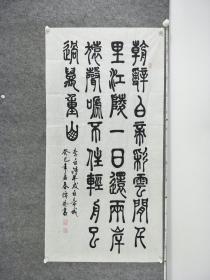 朝辭白帝彩雲間千
里江陵一日還兩岸
猿聲啼不住輕舟已
過萬重山
李白詩早發白帝城
癸巳年春書